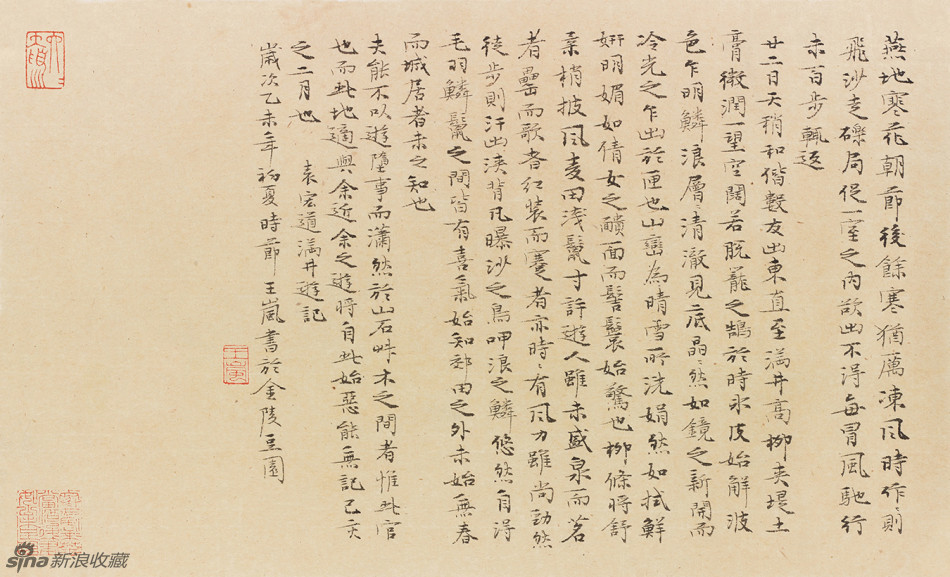 燕地寒花朝節後餘寒猶厲凍風時作則
飛沙走礫局促一室之內欲出不得每冒風馳行
未百步輒返
廿二日天稍和偕數友出東直至滿井高柳夾堤土
膏微潤一望空闊若脫籠之鵠於時冰皮始解波
色乍明鱗浪層〻清澈見底晶然如鏡之新開而
冷光之乍出於匣也山巒為晴雪所洗娟然如拭鮮
妍明媚如倩女之靧面而髻鬟始驚也柳條將舒
柔梢披風麥田淺鬣寸許遊人雖未盛泉而茗
者罍而歌者紅裝而蹇者亦時〻有風力雖尚勁然
徒步則汗出浹背凡曝沙之鳥呷浪之鱗悠然自得
毛羽鱗鬣之間皆有喜氣始知郊田之外未始無春
而城居者未之知也
夫能不以遊墮事而瀟然於山石艸木之間者惟此官
也而此地適與余近余之遊將自此始惡能無記己亥
之二月也 袁宏道滿井遊記
歲次乙未年初夏時節王嵐書於金陵豆園
sina新浪收藏